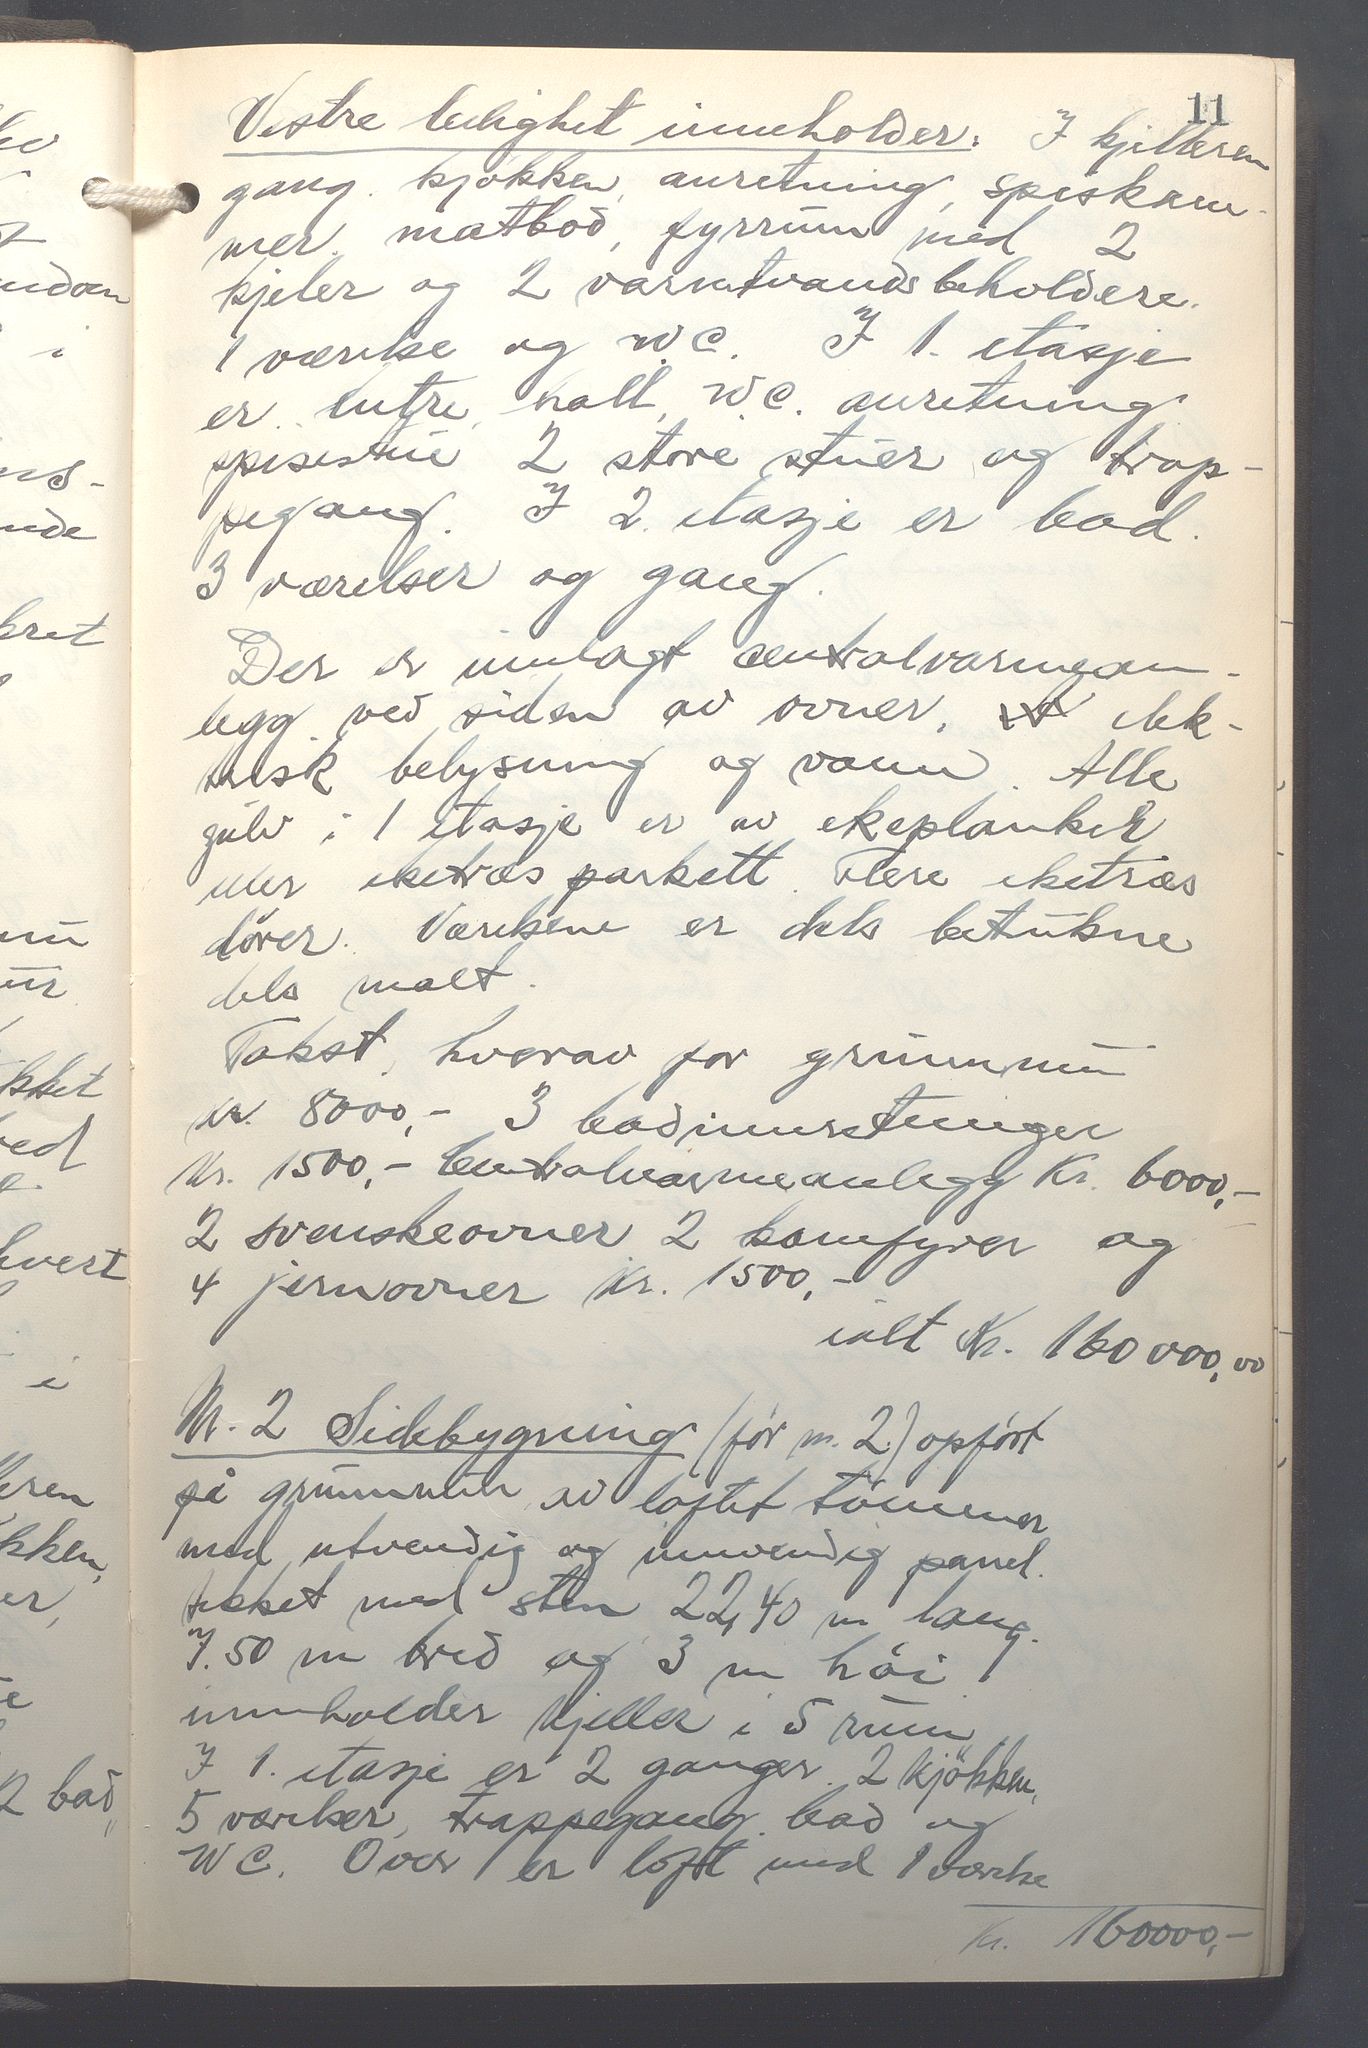 11
Vestre leilighet inneholder: I kjelleren
gang, kjøkken, anretning, spiskam-
mer, matbod, fyrrum med 2
kjeler og 2 varmtvandsbeholdere.
1 værelse og WC. I 1. etasje
er entre, hall, WC. anretning
spisestue 2 store stuer og trap-
pegang. I 2. etasje er bad.
3 værelser og gang.
Der er innlagt centralvarmean-
legg ved siden av ovner, elek-
trisk belysning og vann. Alle
gulv i 1 etasje er av ekeplanker
eller eketræs parkett. Flere eketræs
dører. Værelsene er dels betrukne
dels malt.
Takst, hvorav for grunnmur
kr. 8000,- 3 badinnretninger
Kr. 1500,- Centralvarmeanlegg Kr. 6000,-
2 svenskeovner 2 komfyrer og
4 jernovner Kr. 1500,-
ialt Kr. 160000,00
Nr. 2 Sidebygning (før nr. 2) opført
på grunnmur av laftet tømmer
med utvendig og innvendig panel.
tekket med sten 22,40 m lang.
7.50 m bred og 3 m høi
inneholder kjeller i 5 rum,
I 1. etasje er 2 ganger, 2 kjøkken,
5 værelser, trappegang, bad og
WC. Over er loft med 1 værelse
Kr. 160000,-